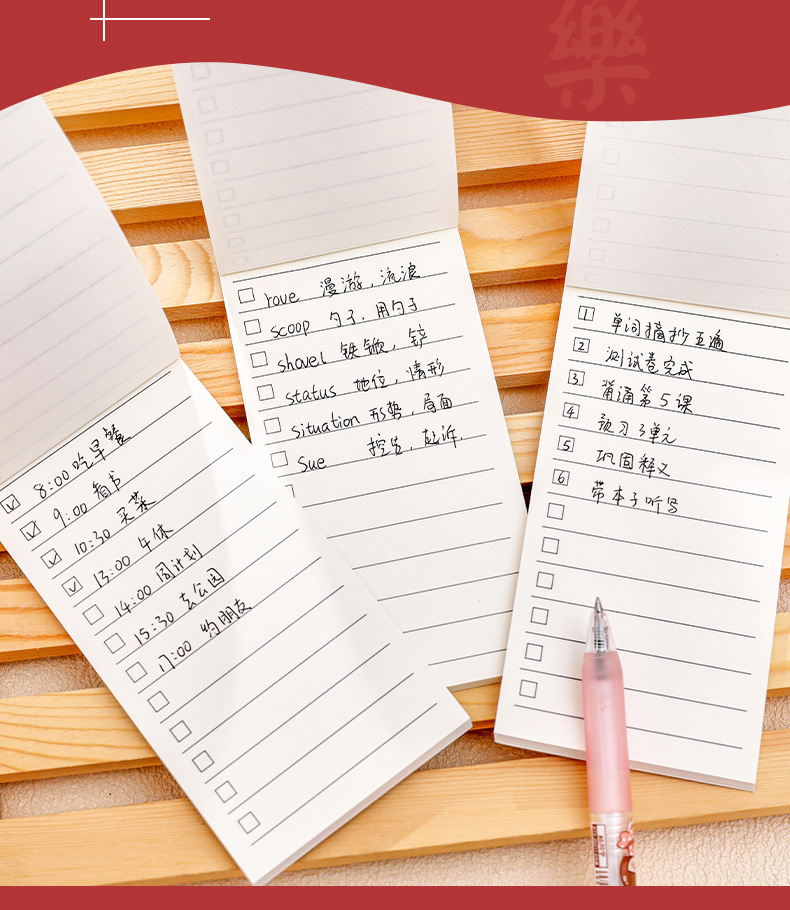 樂
8:00 吃早餐
9:00 看书
10:30 买菜
13:00 午休
14:00 周计划
15:30 去公园
17:00 约朋友
rove 漫游，流浪
scoop 勺子，用勺子
shovel 铁锨，铲
status 地位，情形
situation 形势，局面
Sue 控告，起诉.
1 单词摘抄五遍
2 测试卷完成
3 背诵第5课
4 预习3单元
5 巩固释义
6 带本子听写